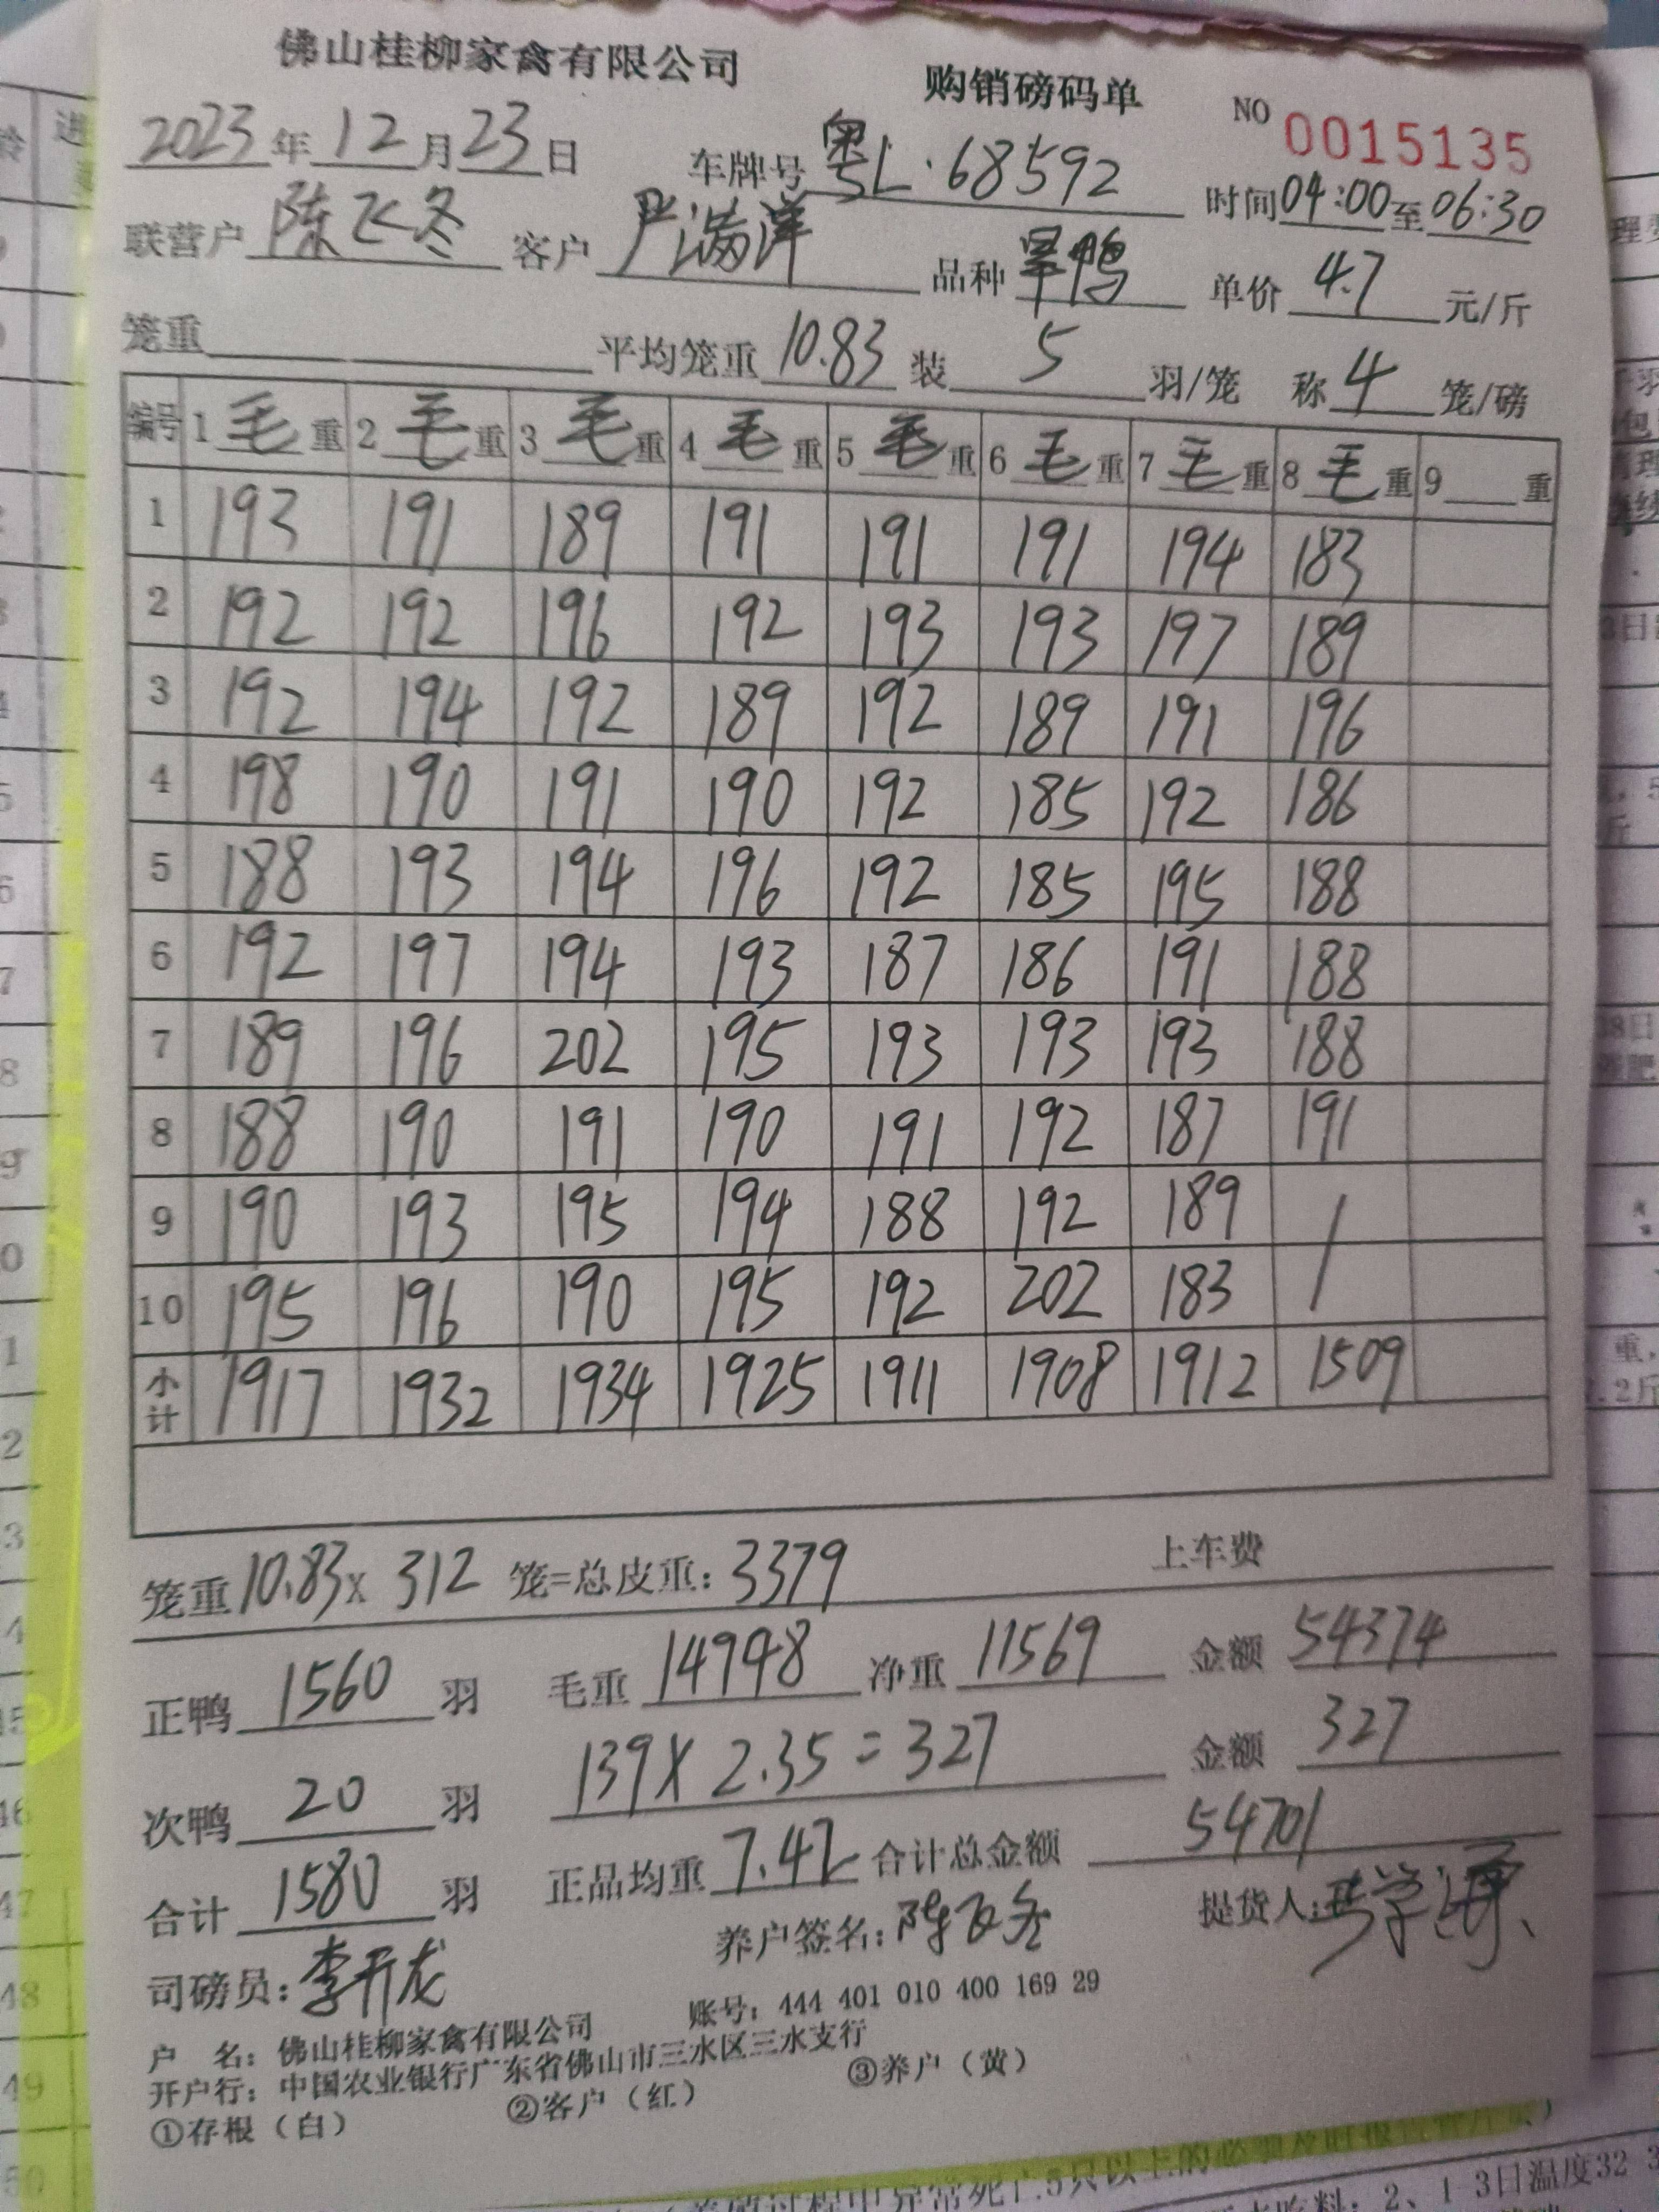 佛山桂柳家禽有限公司 购销磅码单 NO 0015135
2023年12月23日 车牌号 粤L·68592 时间04:00至06:30
联营户 陈飞冬 客户 严满洋 品种 旱鸭 单价 4.7 元/斤
笼重 平均笼重 10.83 装 5 羽/笼 称 4 笼/磅
编号 1 毛 重 2 毛 重 3 毛 重 4 毛 重 5 毛 重 6 毛 重 7 毛 重 8 毛 重 9 重
1 193 191 189 191 191 191 194 183
2 192 192 196 192 193 193 197 189
3 192 194 192 189 192 189 191 196
4 198 190 191 190 192 185 192 186
5 188 193 194 196 192 185 195 188
6 192 197 194 193 187 186 191 188
7 189 196 202 195 193 193 193 188
8 188 190 191 190 191 192 187 191
9 190 193 195 194 188 192 189 /
10 195 196 190 195 192 202 183
小计 1917 1932 1934 1925 1911 1908 1912 1509
笼重 10.83 x 312 笼=总皮重: 3379 上车费
正鸭 1560 羽 毛重 14948 净重 11569 金额 54374
次鸭 20 羽 139 X 2.35 = 327 金额 327
合计 1580 羽 正品均重 7.42 合计总金额 54701
司磅员: 李开龙 养户签名: 陈飞冬 提货人:
户 名: 佛山桂柳家禽有限公司 账号: 444 401 010 400 169 29
开户行: 中国农业银行广东省佛山市三水区三水支行
①存根(白) ②客户(红) ③养户(黄)